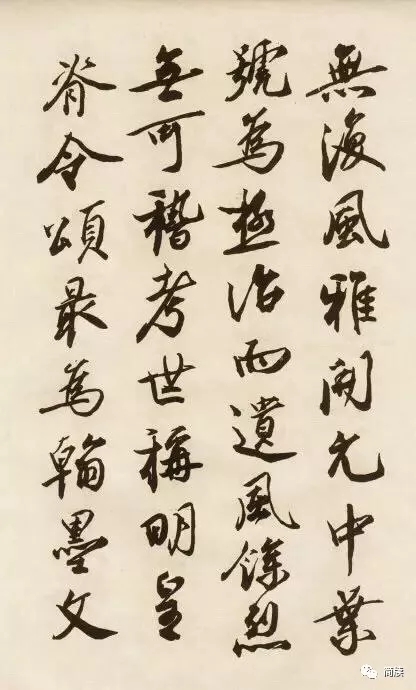 無復風雅開元中葉
號為極治而遺風餘烈
無可稽考世稱明皇
脊令頌最為翰墨文
简族